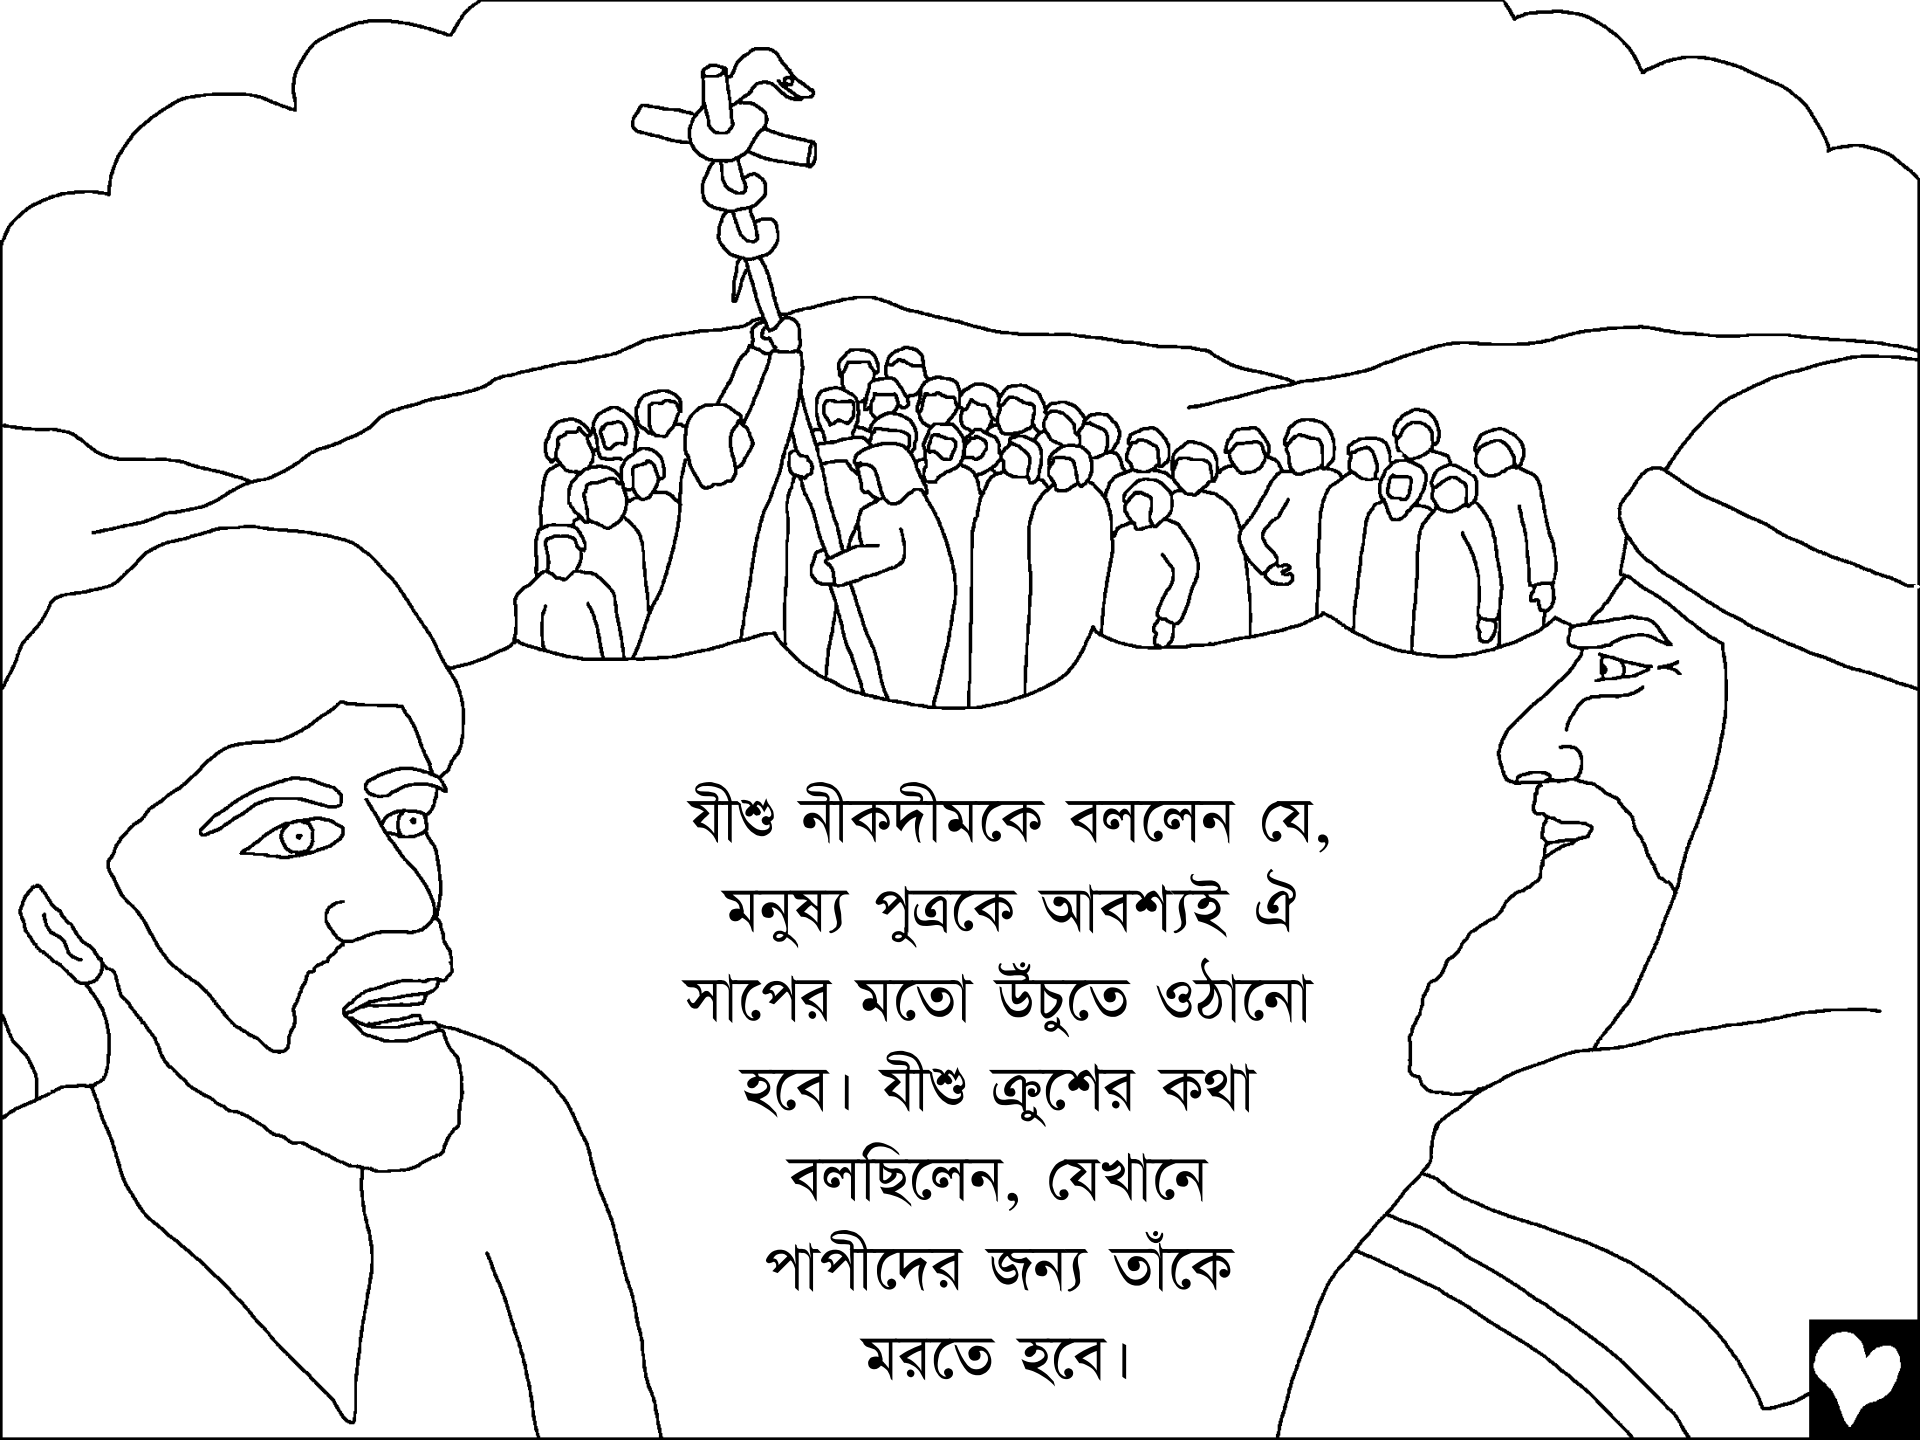 যীশু নীকদীমকে বললেন যে,
মনুষ্য পুত্রকে আবশ্যই ঐ
সাপের মতো উঁচুতে ওঠানো
হবে। যীশু ক্রুশের কথা
বলছিলেন, যেখানে
পাপীদের জন্য তাঁকে
মরতে হবে।